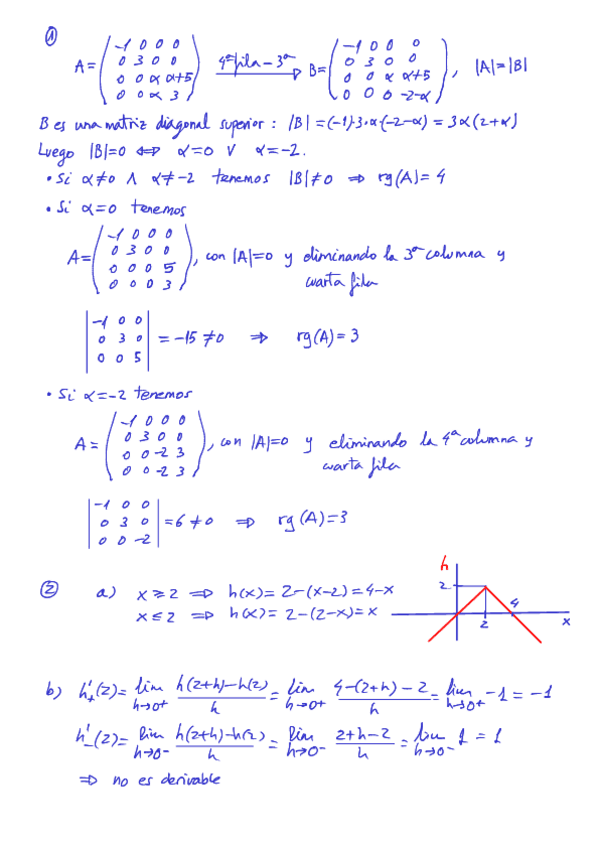 ①
A = ( -1 0 0 0 / 0 3 0 0 / 0 0 α α+5 / 0 0 α 3 ) 4ª fila - 3ª → B = ( -1 0 0 0 / 0 3 0 0 / 0 0 α α+5 / 0 0 0 -2-α ), |A|=|B|
B es una matriz diagonal superior: |B| = (-1)·3·α(-2-α) = 3α(2+α)
Luego |B|=0 ⇔ α=0 ∨ α=-2.
• Si α≠0 ∧ α≠-2 tenemos |B|≠0 ⇒ rg(A)=4
• Si α=0 tenemos
A = ( -1 0 0 0 / 0 3 0 0 / 0 0 0 5 / 0 0 0 3 ), con |A|=0 y eliminando la 3ª columna y
cuarta fila
| -1 0 0 / 0 3 0 / 0 0 5 | = -15 ≠ 0 ⇒ rg(A)=3
• Si α=-2 tenemos
A = ( -1 0 0 0 / 0 3 0 0 / 0 0 -2 3 / 0 0 -2 3 ), con |A|=0 y eliminando la 4ª columna y
cuarta fila
| -1 0 0 / 0 3 0 / 0 0 -2 | = 6 ≠ 0 ⇒ rg(A)=3
② a) x ≥ 2 ⇒ h(x) = 2-(x-2) = 4-x
x ≤ 2 ⇒ h(x) = 2-(2-x) = x
h
2
4
2
x
b) h'₊(2) = lim h→0+ (h(2+h)-h(2))/h = lim h→0+ (4-(2+h)-2)/h = lim h→0+ -1 = -1
h'₋(2) = lim h→0- (h(2+h)-h(2))/h = lim h→0- (2+h-2)/h = lim h→0- 1 = 1
⇒ no es derivable